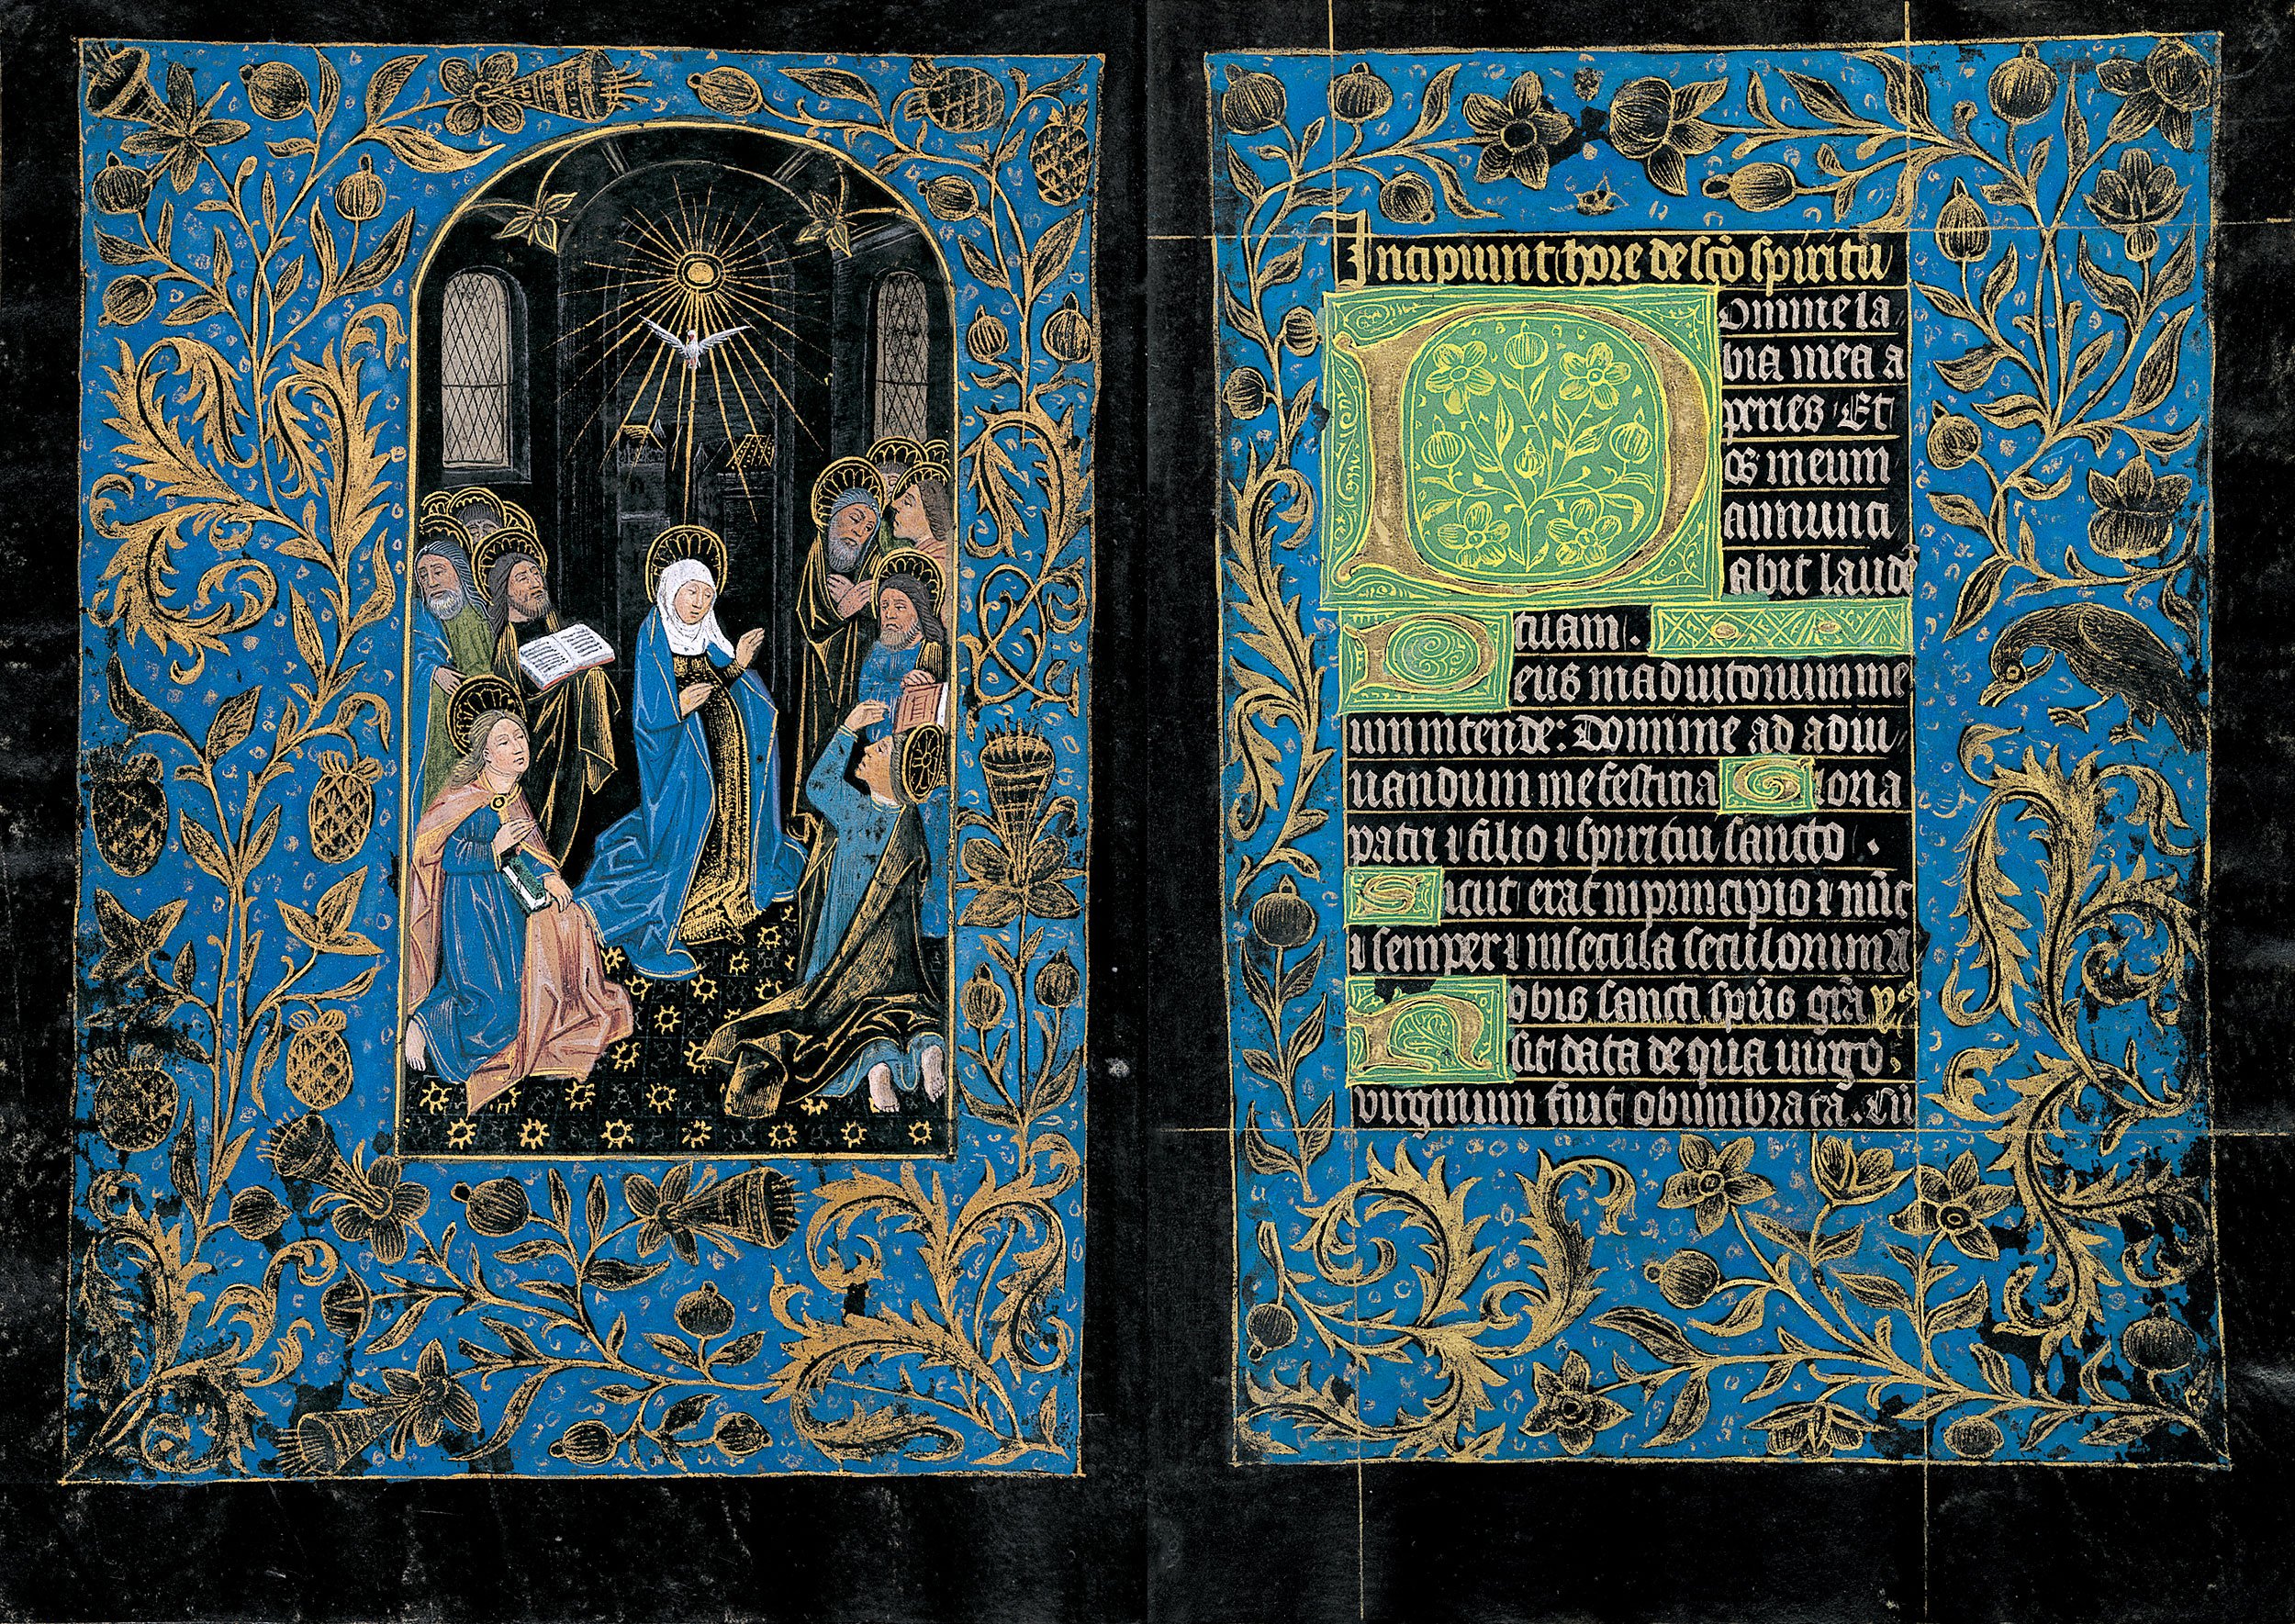 Incipiunt hore de sc̄o spiritu
Domine la
bia mea a
peries Et
os meum
annunci
abit laudē
tuam.
Deus in adiutorium me
um intende: Domine ad adiu
uandum me festina Gloria
patri ⁊ filio ⁊ spiritu sancto .
Sicut erat in principio ⁊ nūc
⁊ semper ⁊ in secula seculorum
Nobis sancti spūs grā
sit data de qua uirgo
virginum fuit obumbrata. Cū